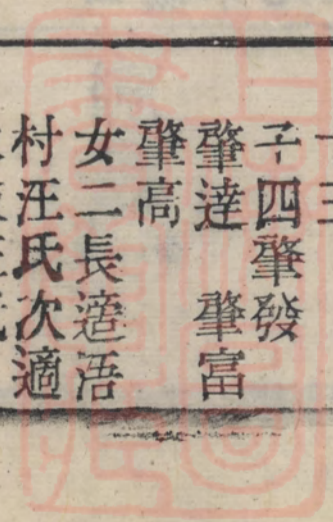 子四肇發
肇達　肇富
肇高
女二長適浯
村汪氏次適